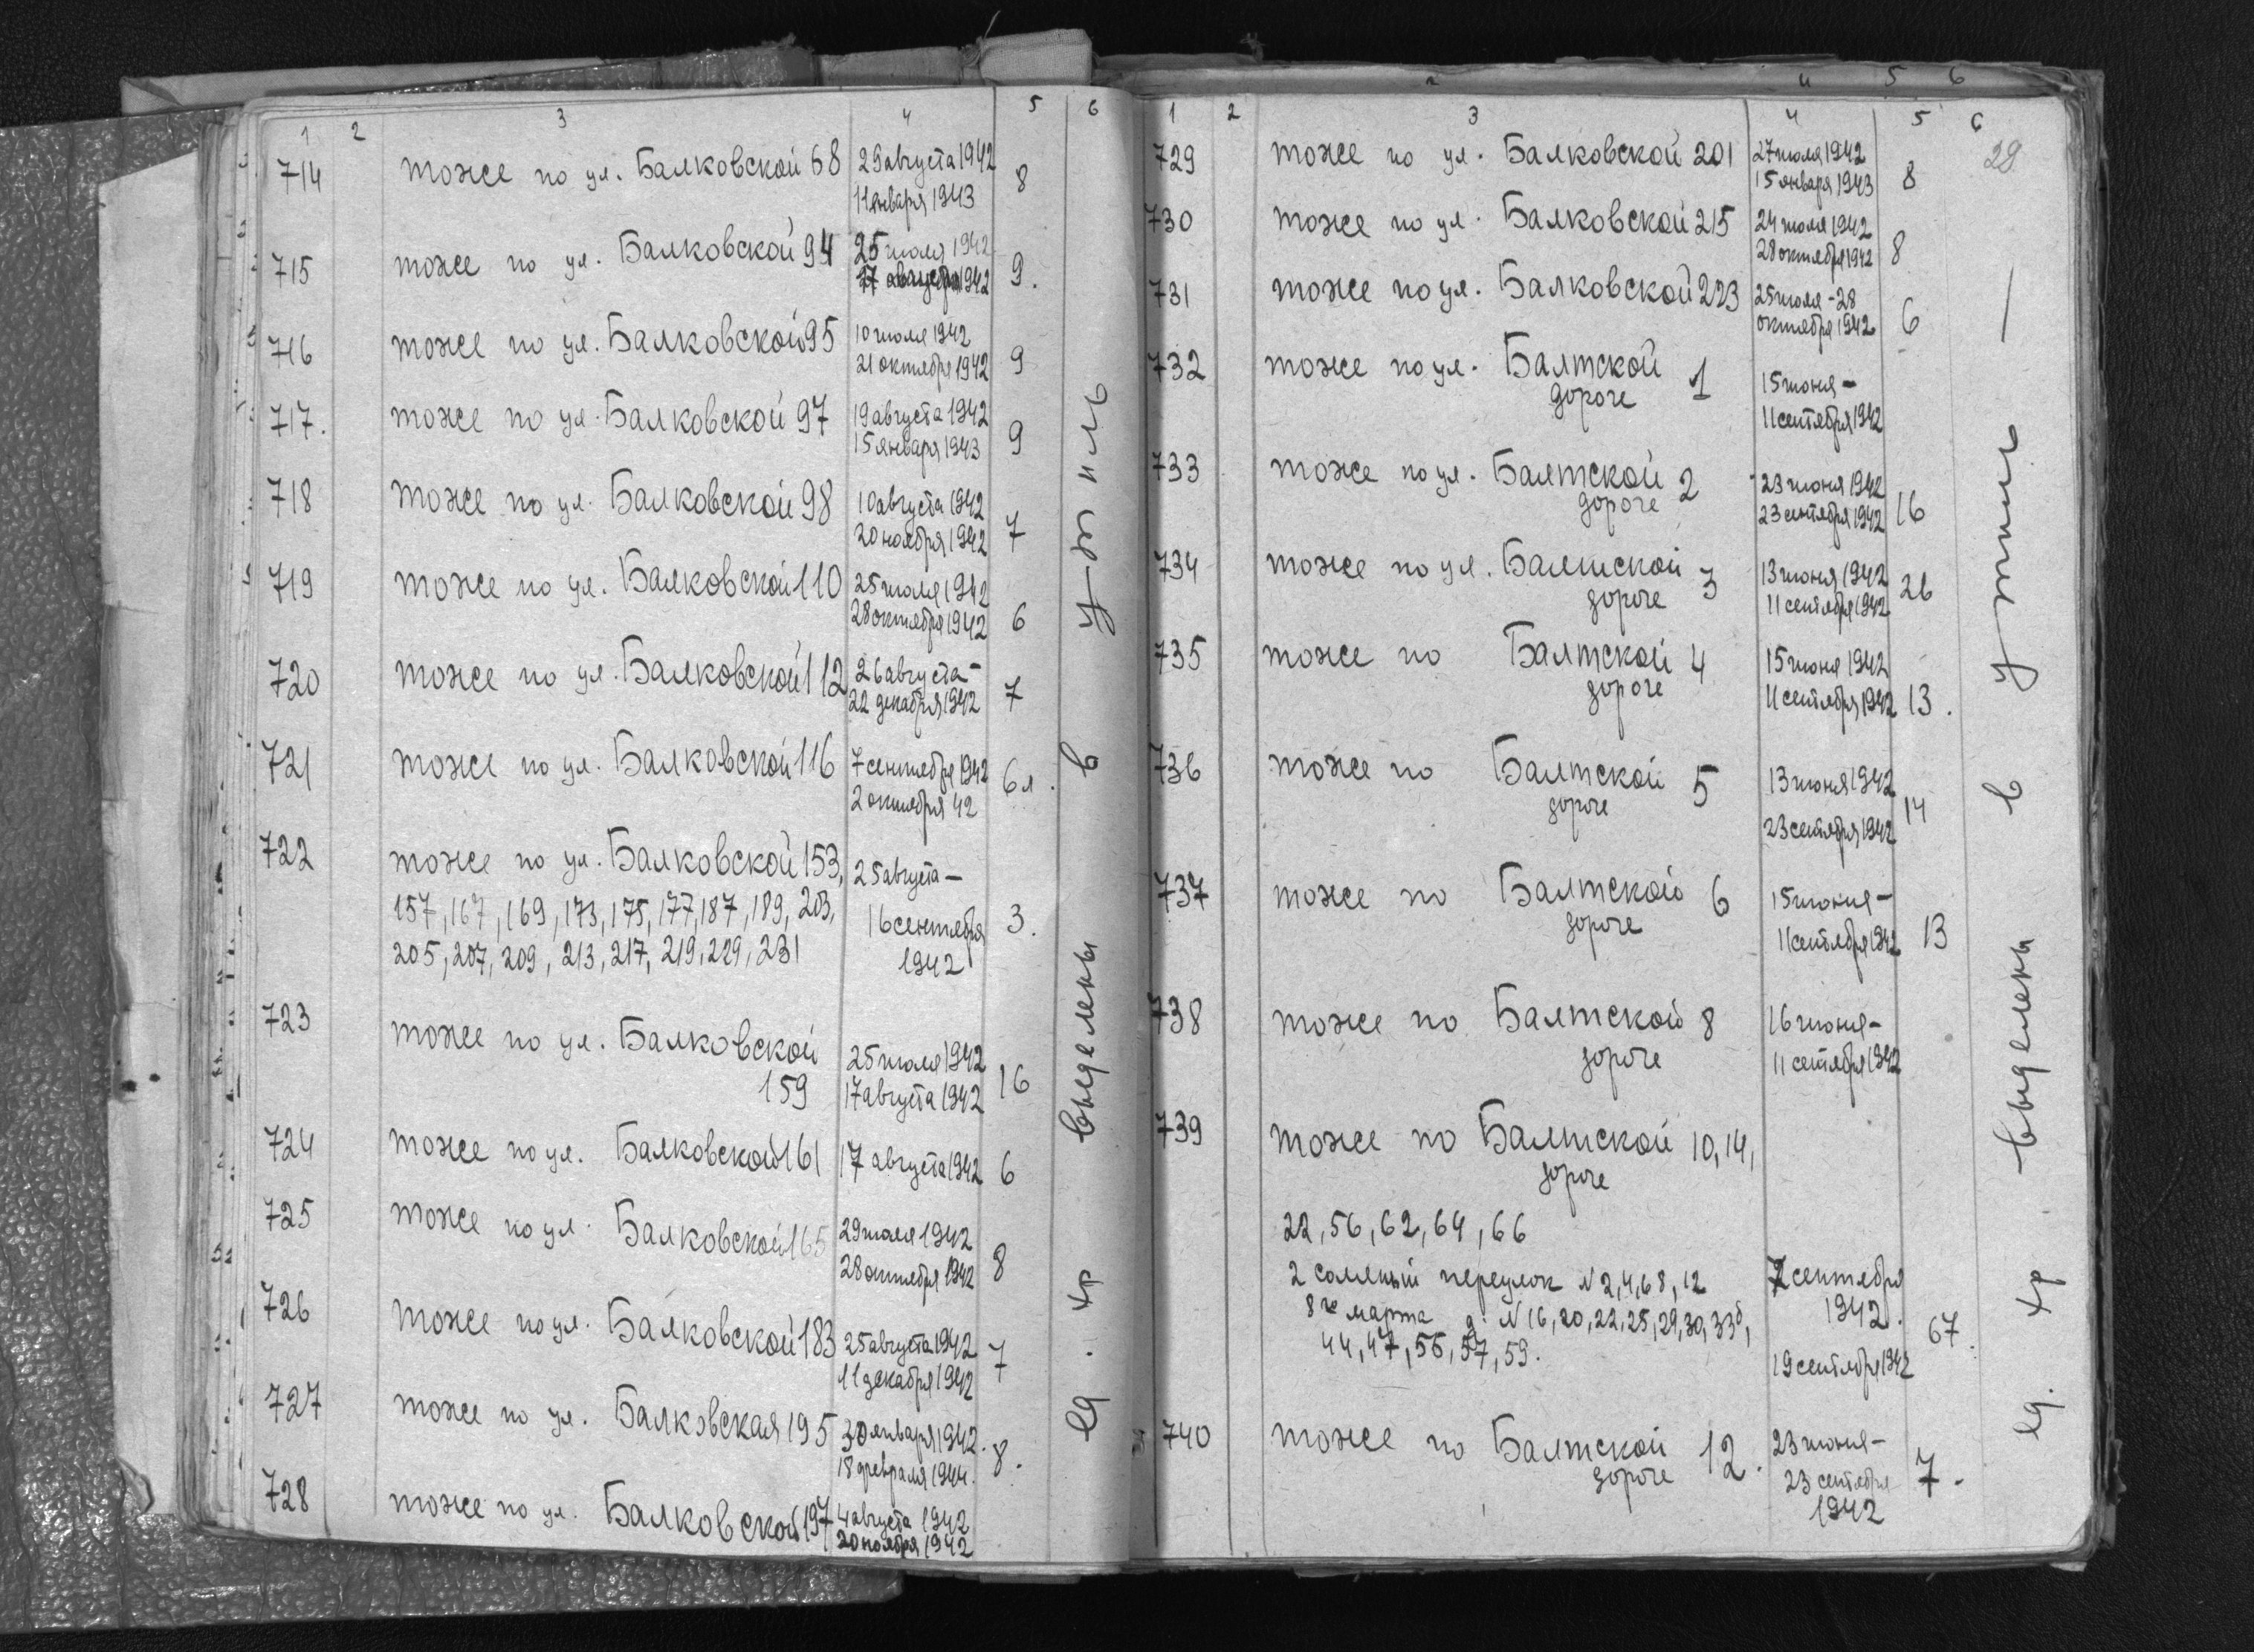 1 2 3 4 5 6
714 тоже по ул. Балковской 68 29 августа 1942 8
11 января 1943
715 тоже по ул. Балковской 94 25 июля 1942 9.
17 1942
716 тоже по ул. Балковской 95 10 июля 1942 9
21 октября 1942
717. тоже по ул. Балковской 97 19 августа 1942 9
15 января 1943
718 тоже по ул. Балковской 98 10 августа 1942 7
20 ноября 1942
719 тоже по ул. Балковской 110 25 июля 1942 6
28 октября 1942
720 тоже по ул. Балковской 112 26 августа - 7
22 декабря 1942
721 тоже по ул. Балковской 116 7 сентября 1942 6л.
2 октября 42
722 тоже по ул. Балковской 153, 25 августа —
157, 167, 169, 173, 175, 177, 187, 189, 203, 16 сентября 3.
205, 207, 209, 213, 217, 219, 229, 231 1942
723 тоже по ул. Балковской 25 июля 1942 16
159 17 августа 1942
724 тоже по ул. Балковской 161 17 августа 1942 6
725 тоже по ул. Балковской 165 29 июля 1942 8
28 октября 1942
726 тоже по ул. Балковской 183 25 августа 1942 7
11 декабря 1942
727 тоже по ул. Балковская 195 30 января 1942. 8.
18 февраля 1944.
728 тоже по ул. Балковской 197 4 августа 1942
20 ноября 1942
ед. хр выделены в утиль
1 2 3 4 5 6
29
729 тоже по ул. Балковской 201 27 июля 1942 8
15 января 1943
730 тоже по ул. Балковской 215 24 июля 1942 8
28 октября 1942
731 тоже по ул. Балковской 223 25 июля - 28 6
октября 1942
732 тоже по ул. Балтской 1 15 июня -
дороге 11 сентября 1942
733 тоже по ул. Балтской 2 23 июня 1942 16
дороге 23 сентября 1942
734 тоже по ул. Балтской 3 13 июня 1942 26
дороге 11 сентября 1942
735 тоже по Балтской 4 15 июня 1942
дороге 11 сентября 1942 13.
736 тоже по Балтской 5 13 июня 1942 14
дороге 23 сентября 1942
737 тоже по Балтской 6 15 июня -
дороге 11 сентября 1942 13
738 тоже по Балтской 8 16 июня -
дороге 11 сентября 1942
739 тоже по Балтской 10, 14,
дороге
22, 56, 62, 64, 66
2 соляный переулок N 2, 4, 6 8, 12 7 сентября
8 го марта д. N 16, 20, 22, 25, 29, 30, 33б, 1942. 67.
44, 47, 55, 57, 59. 19 сентября 1942
740 тоже по Балтской 12. 23 июня -
дороге 23 сентября 7.
1942
ед. хр выделены в утиль —